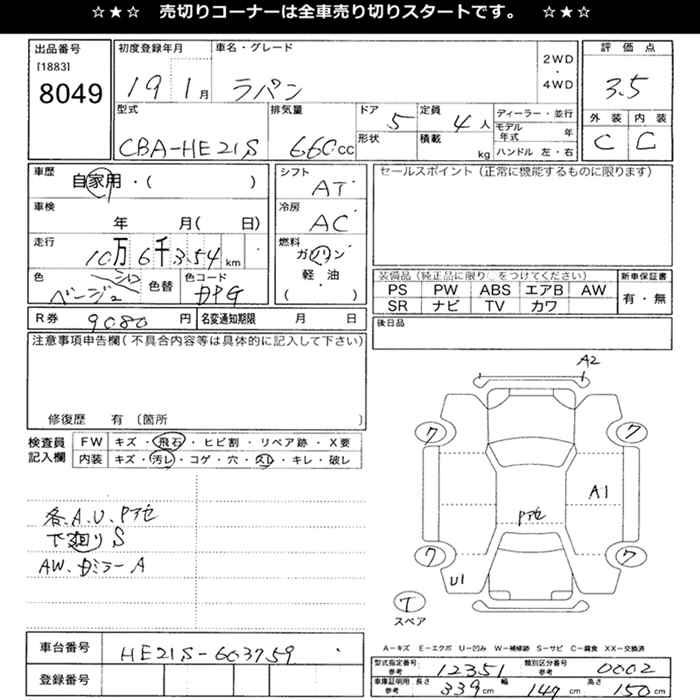 ☆★☆ 売切りコーナーは全車売り切りスタートです。 ☆★☆
出品番号 初度登録年月 車名・グレード 2WD・4WD 評価点
[1883]
8049 19 1月 ラパン 3.5
型式 排気量 ドア 定員 ディーラー・並行 外装 内装
CBA-HE21S 660cc 5 4人 モデル年式 年 C C
形状 積載 kg ハンドル 左・右
車歴 自家用・( ) シフト AT セールスポイント(正常に機能するものに限ります)
車検 年 月( 日) 冷房 AC
走行 10万6千354km 燃料 ガソリン・軽・油( )
色 ベージュ 色替 色コード
装備品(純正品に限り○をつけてください) 新車保証書
PS PW ABS エアB AW 有・無
SR ナビ TV カワ
R券 9080円 名変通知期限 月 日 後日品
注意事項申告欄(不具合内容等は具体的に記入して下さい)
修復歴 有 〔箇所
検査員記入欄 FW キズ・飛石・ヒビ割・リペア跡・X要
内装 キズ・汚レ・コゲ・穴・スレ・キレ・破レ
各、A、U、Pアセ
下廻りS
AW、ドミラーA
A2
7 7
A1
Pアセ
7 7
U1
T
スペア
A-キズ E-エクボ U-凹み W-補修跡 S-サビ C-腐食 XX-交換済
車台番号 HE21S-603759
登録番号
型式指定番号 参考 12351 類別区分番号 参考 0002
車庫証明用 参考 長さ 339cm 幅 147cm 高さ 150cm